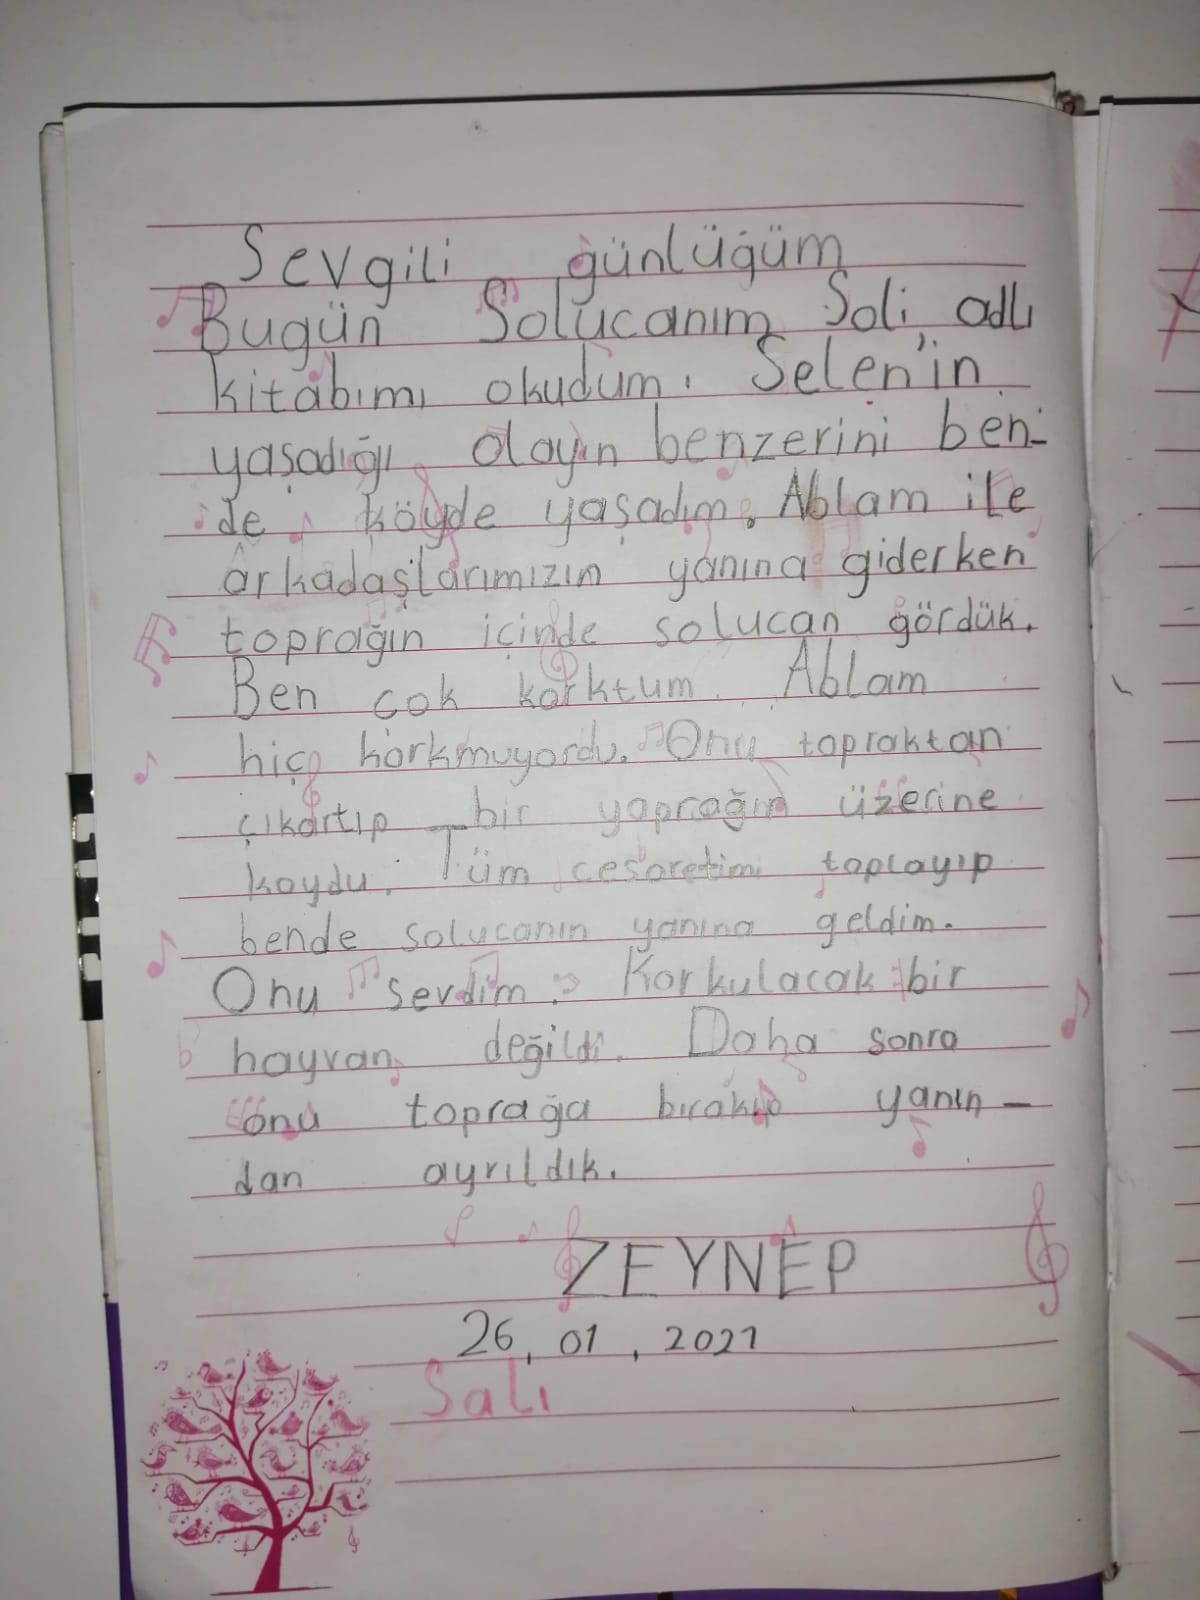 Sevgili günlüğüm
Bugün Solucanım Soli adlı
kitabımı okudum. Selen'in
yaşadığı olayın benzerini ben-
de köyde yaşadım. Ablam ile
arkadaşlarımızın yanına giderken
toprağın içinde solucan gördük.
Ben çok korktum. Ablam
hiç korkmuyordu. Onu topraktan
çıkartıp bir yaprağın üzerine
koydu. Tüm cesaretimi toplayıp
bende solucanın yanına geldim.
Onu sevdim. Korkulacak bir
hayvan değildi. Daha sonra
onu toprağa bırakıp yanın-
dan ayrıldık.
ZEYNEP
26, 01, 2021
Salı